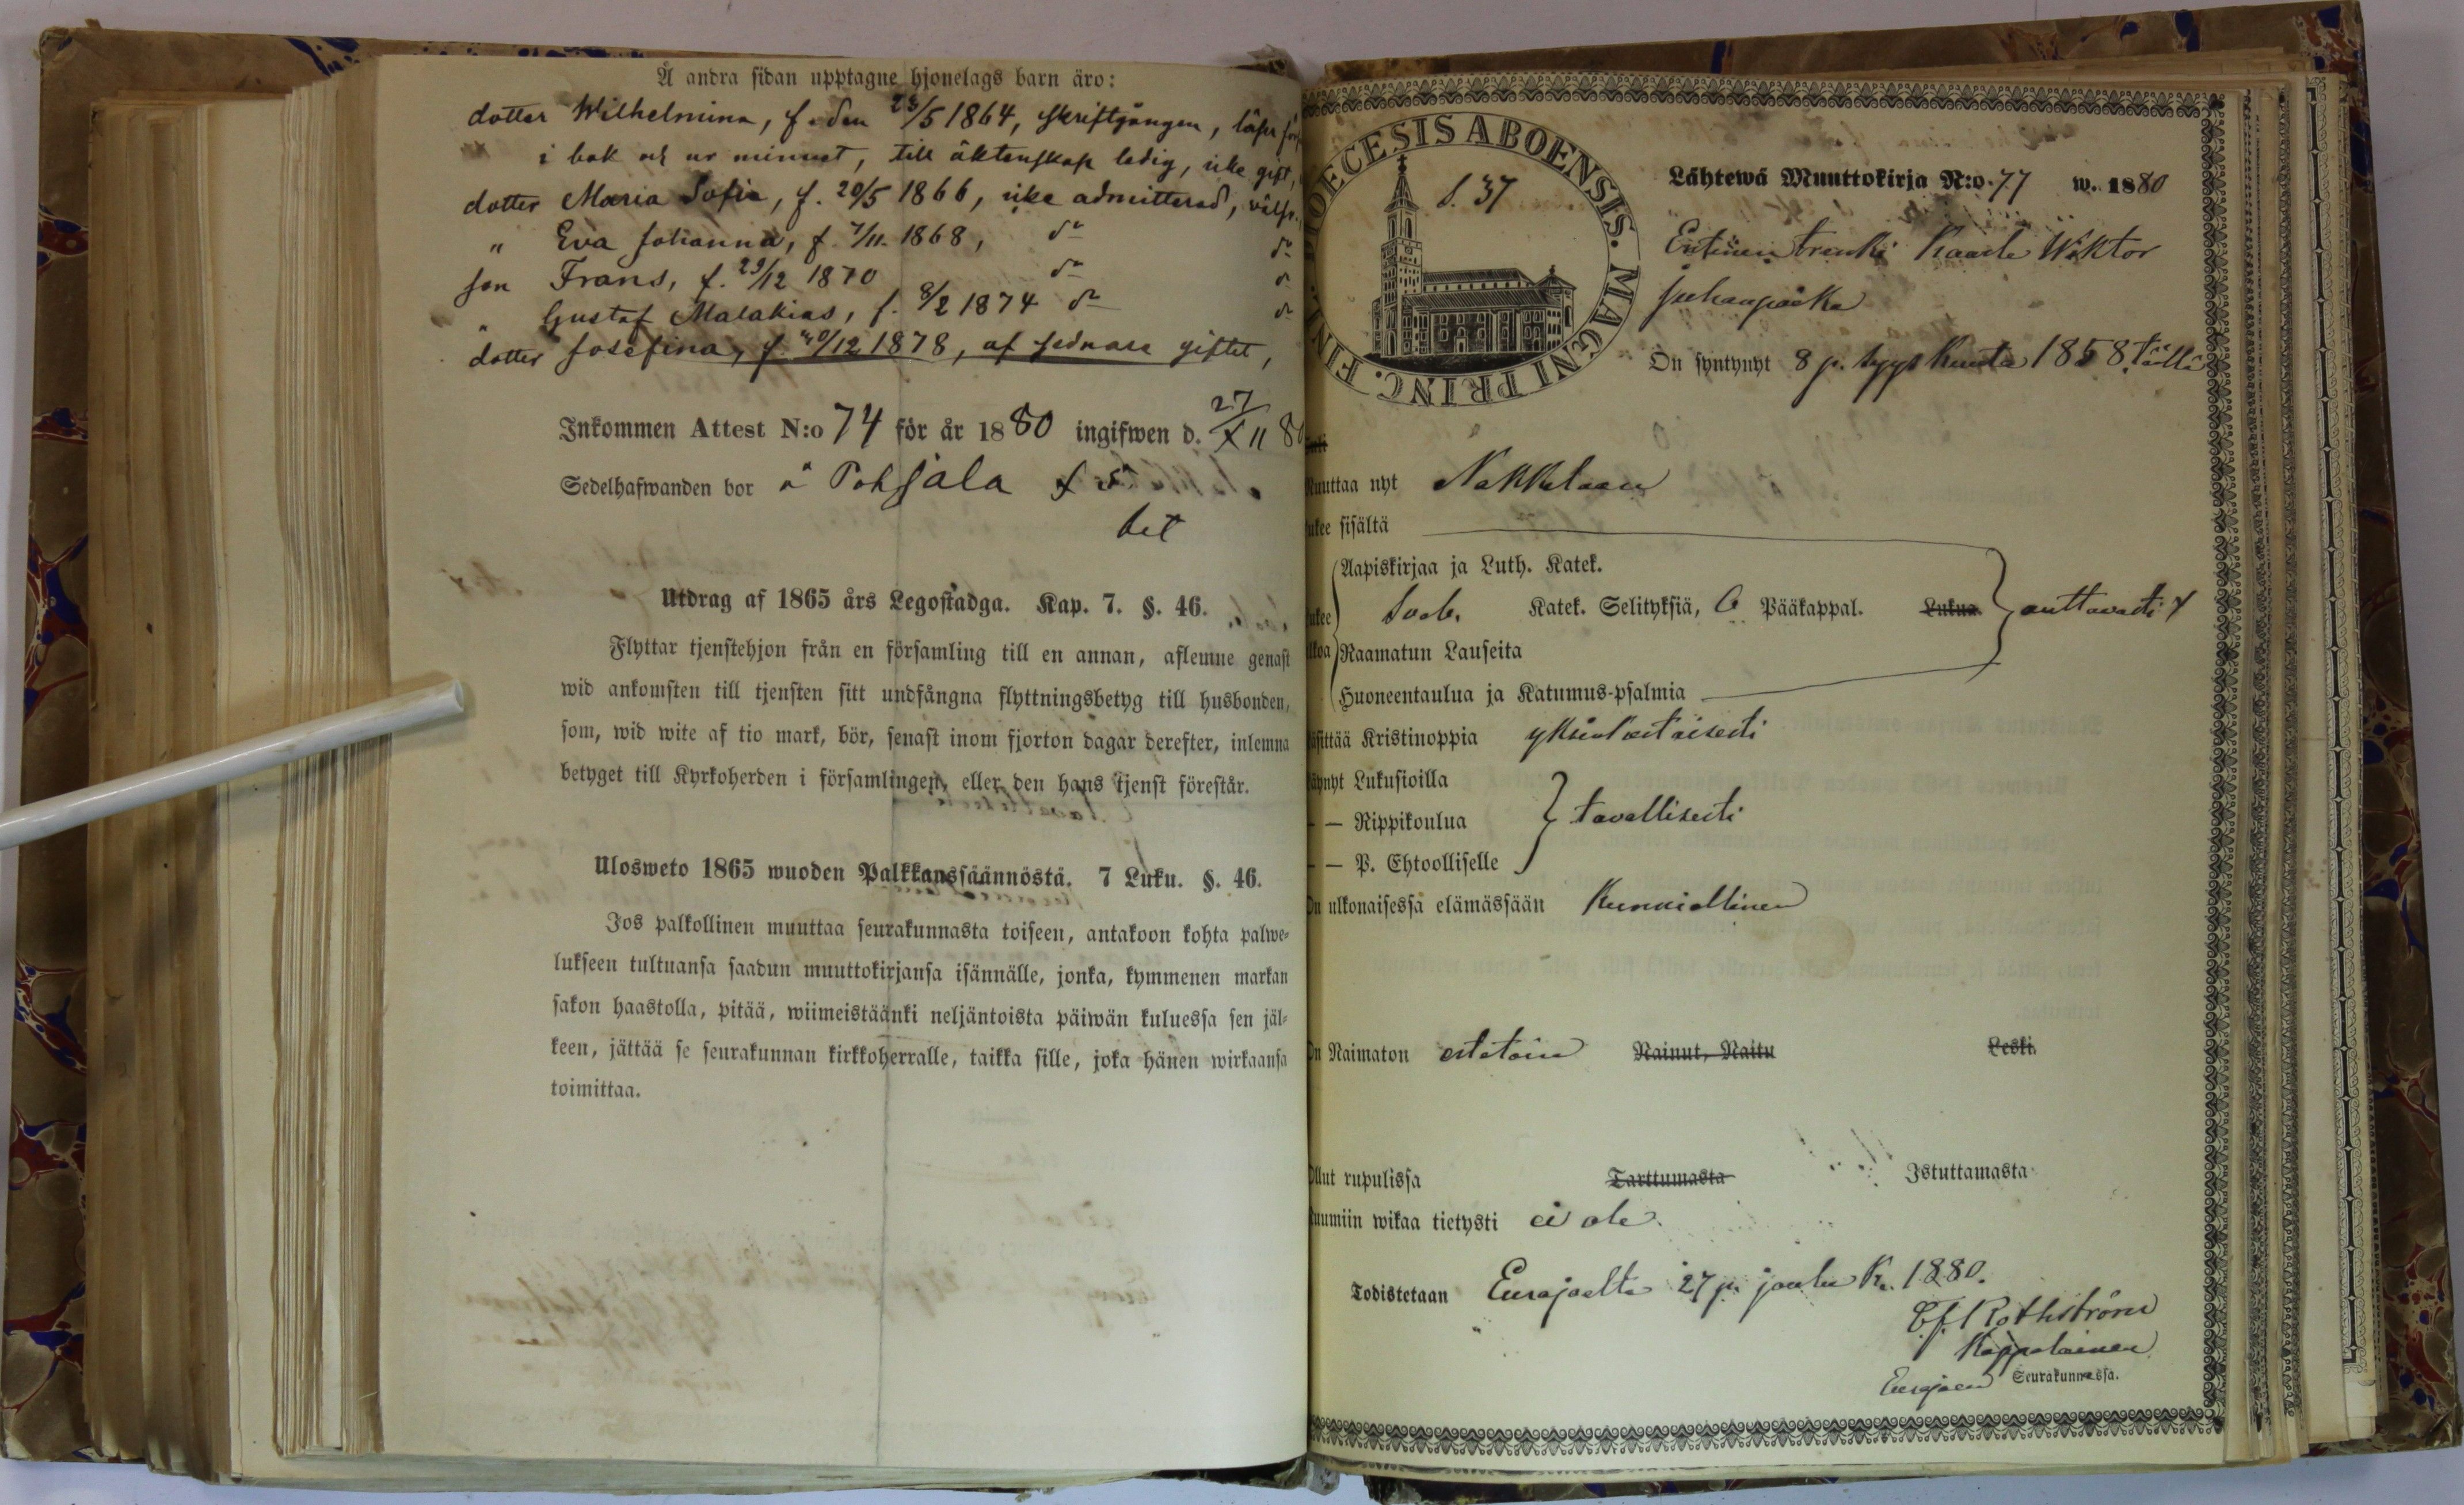 Å andra sidan upptagne hjonelags barn äro:
dotter Wilhelmina, f. den 23/5 1864, skriftgången, läser förs
i bok och ur minnet, till äktenskap ledig, icke gift,
dotter Maria Sofia, f. 20/5 1866, icke admitterad,
" Eva Johanna, f. 7/11 1868, do do
son Frans, f. 29/12 1870 do do
" Gustaf Malakias, f. 8/2 1874 do do
dotter Josefina, f. 20/12 1878, af sednare giftet,
Inkommen Attest N:o 74 för år 1880 ingifwen d. 27/XII 80
Sedelhafwanden bor å Pohjala
bet
Utdrag af 1865 års Legostadga. Kap. 7. §. 46.
Flyttar tjenstehjon från en församling till en annan, aflemne genast
wid ankomsten till tjensten sitt undfångna flyttningsbetyg till husbonden,
som, wid wite af tio mark, bör, senast inom fjorton dagar derefter, inlemna
betyget till Kyrkoherden i församlingen, eller den hans tjenst förestår.
Ulosweto 1865 wuoden Palkkanssäännöstä. 7 Luku. §. 46.
Jos palkollinen muuttaa seurakunnasta toiseen, antakoon kohta palwe-
lukseen tultuansa saadun muuttokirjansa isännälle, jonka, kymmenen markan
sakon haastolla, pitää, wiimeistäänki neljäntoista päiwän kuluessa sen jäl-
keen, jättää se seurakunnan kirkkoherralle, taikka sille, joka hänen wirkaansa
toimittaa.
DIOECESIS ABOENSIS. MAGNI PRINC. FINL.
S. 37
Lähtewä Muuttokirja N:o 77 w. 1880
Entinen trenki Kaarle Wiktor
Juhanpoika
On syntynyt 8 p. syys Kuuta 1858 täällä
Muuttaa nyt Nakkilaan
ukee sisältä
Aapiskirjaa ja Luth. KateK.
ukee Sveb. Katek. Selityksiä, 6 Pääkappal. Lukua auttavasti
lkoa Raamatun Lauseita
Huoneentaulua ja Katumus-psalmia
äsittää Kristinoppia yksinkertaisesti
äynyt Lukusioilla
— — Rippikoulua tavallisesti
— — P. Ehtoolliselle
On ulkonaisessa elämässään Kunniallinen
On Naimaton esteetoin Nainut, Naitu Leski.
Ollut rupulissa Tarttumasta Istuttamasta
uumiin wikaa tietysti ei ole.
Todistetaan Eurajoelta 27 p. joulu K. 1880.
Rothström
Kappalainen
Eurajoen Seurakunnassa.